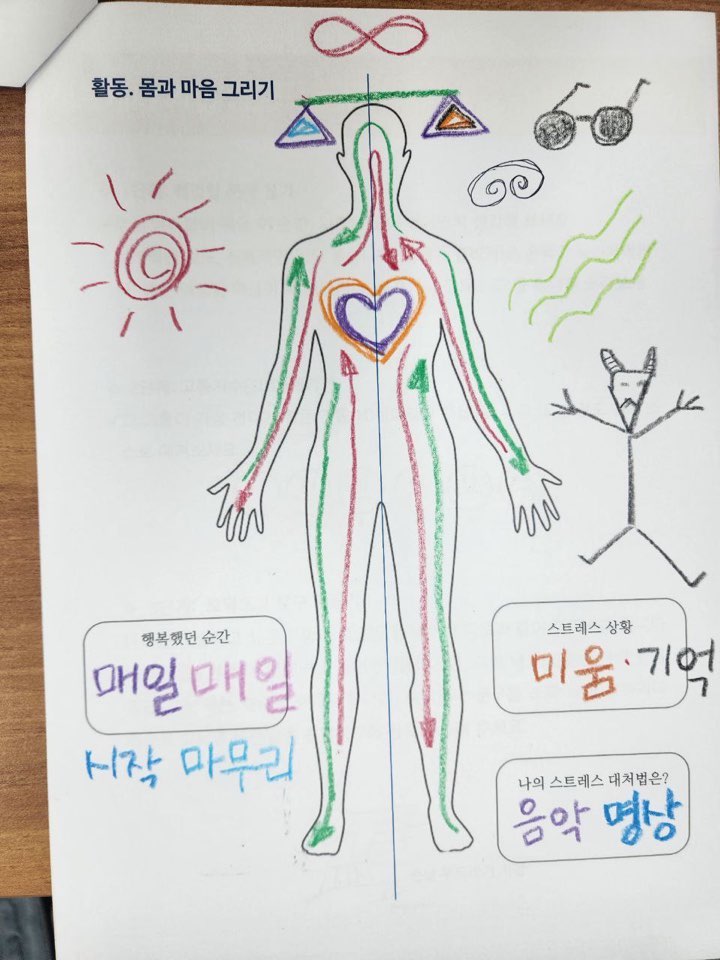 활동. 몸과 마음 그리기
행복했던 순간
매일 매일
시작 마무리
스트레스 상황
미움·기억
나의 스트레스 대처법은?
음악 명상